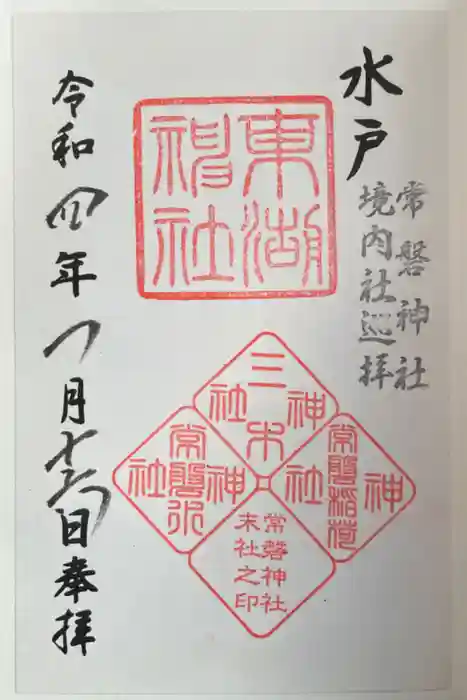 水戸
常磐神社
境内社巡拝
東湖
神社
三木
神社
常磐稲荷
神社
常磐水
神社
常磐神社
末社之印
令和四年月十六日奉拝